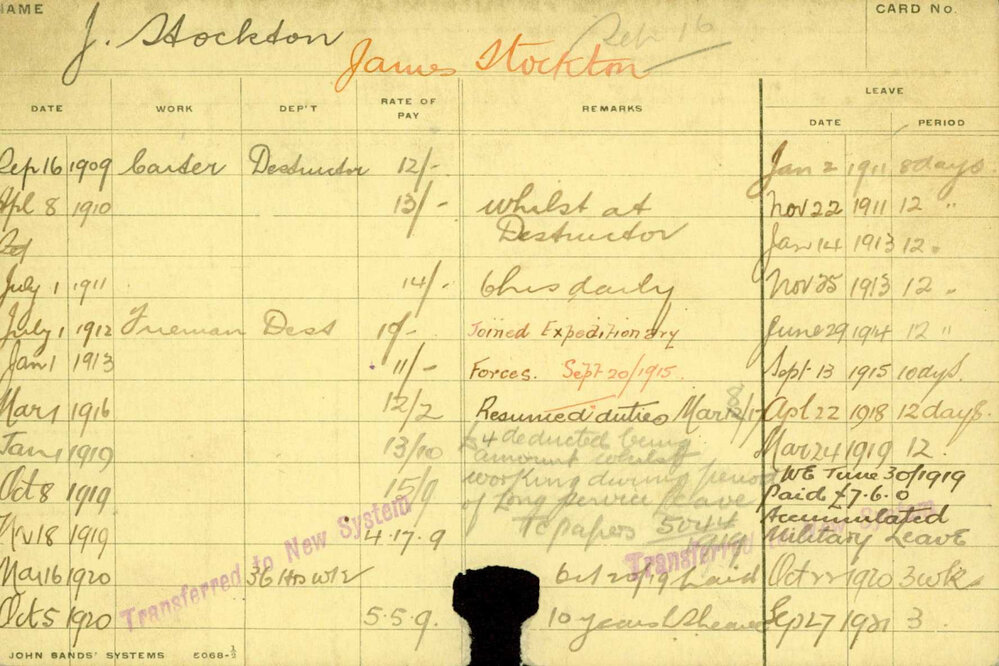 NAME
CARD No.
J. Stockton
Sep 16
James Stockton
DATE WORK DEP'T RATE OF PAY REMARKS LEAVE
DATE PERIOD
Sep 16 1909 Carter Destructor 12/- Jan 2 1911 8 days.
Apl 8 1910 13/- whilst at Nov 22 1911 12 "
Destructor Jan 14 1913 12 "
July 1 1911 14/- 6hrs daily Nov 25 1913 12 "
July 1 1912 Fireman Dest Joined Expeditionary June 29 1914 12 "
Jan 1 1913 11/- Forces. Sept 20/1915. Sept 13 1915 10 dys.
Mar 1 1916 12/2 Resumed duties Mar /17 Apl 22 1918 12 days.
Jan 1 1919 13/10 £4 deducted being Mar 24 1919 12.
amount whilst
Oct 8 1919 15/9 working during period WE June 30/1919
of Long Service Leave Paid £7.6.0
Nov 18 1919 4.17.9 TC papers 5044 Accumulated
1919 Military Leave
Transferred to New System
Transferred to New System
Mar 16 1920 36 Hrs Oct 20/19 Paid Oct 22 1920 3 wks
Oct 5 1920 5.5.9. 10 years Sep 27 1921 3.
JOHN SANDS' SYSTEMS 5068-½